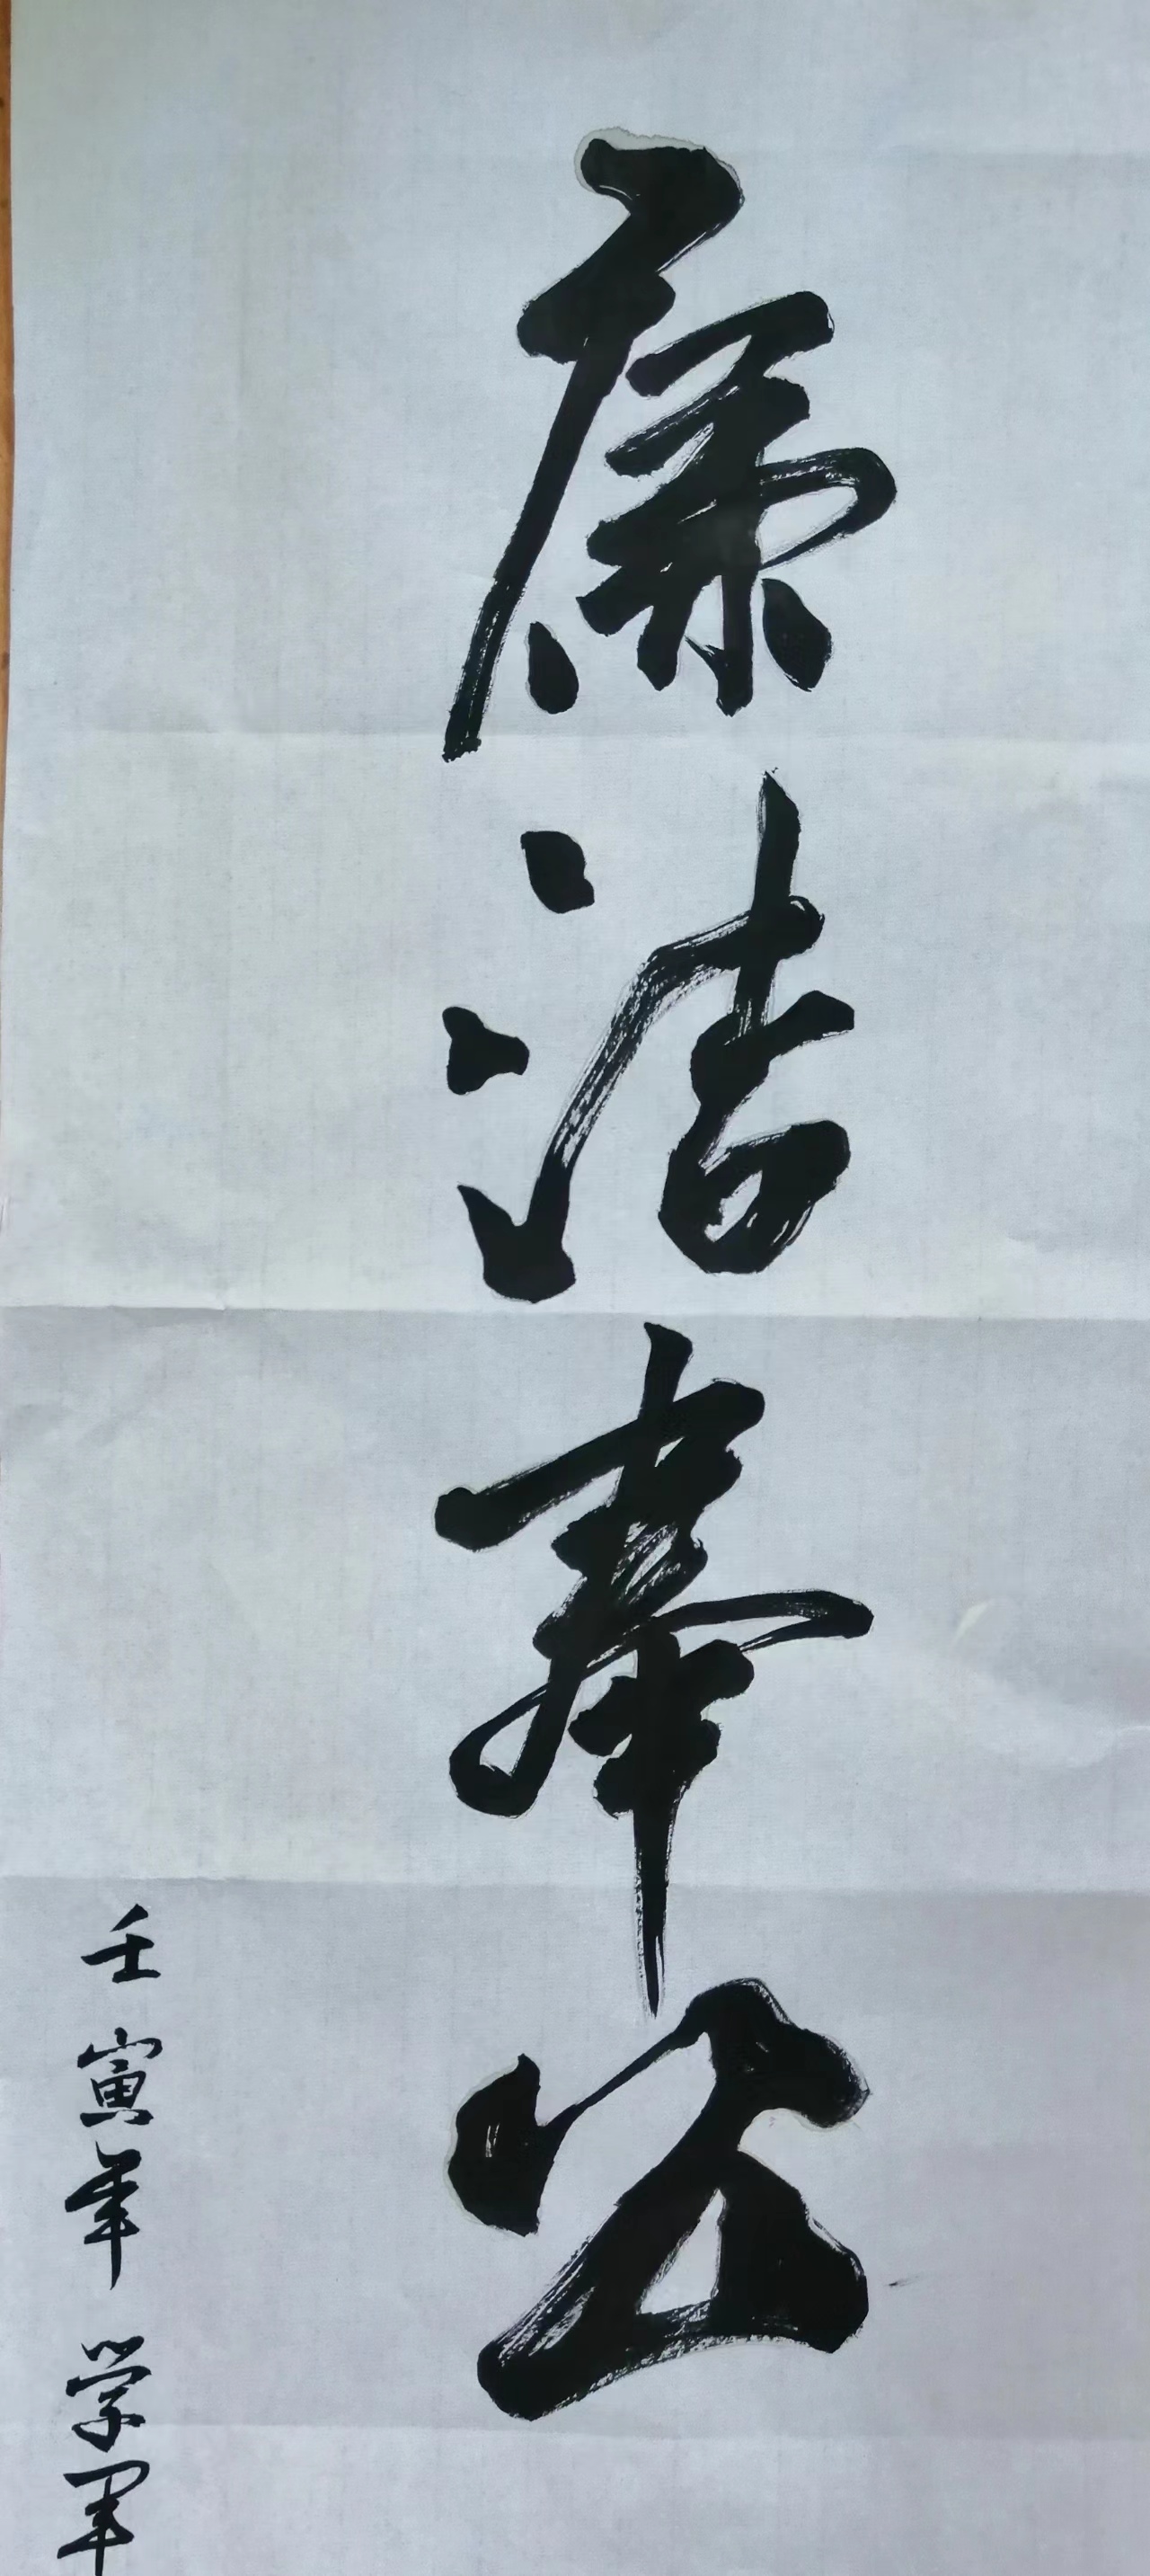 廉洁奉公
壬寅年 学军